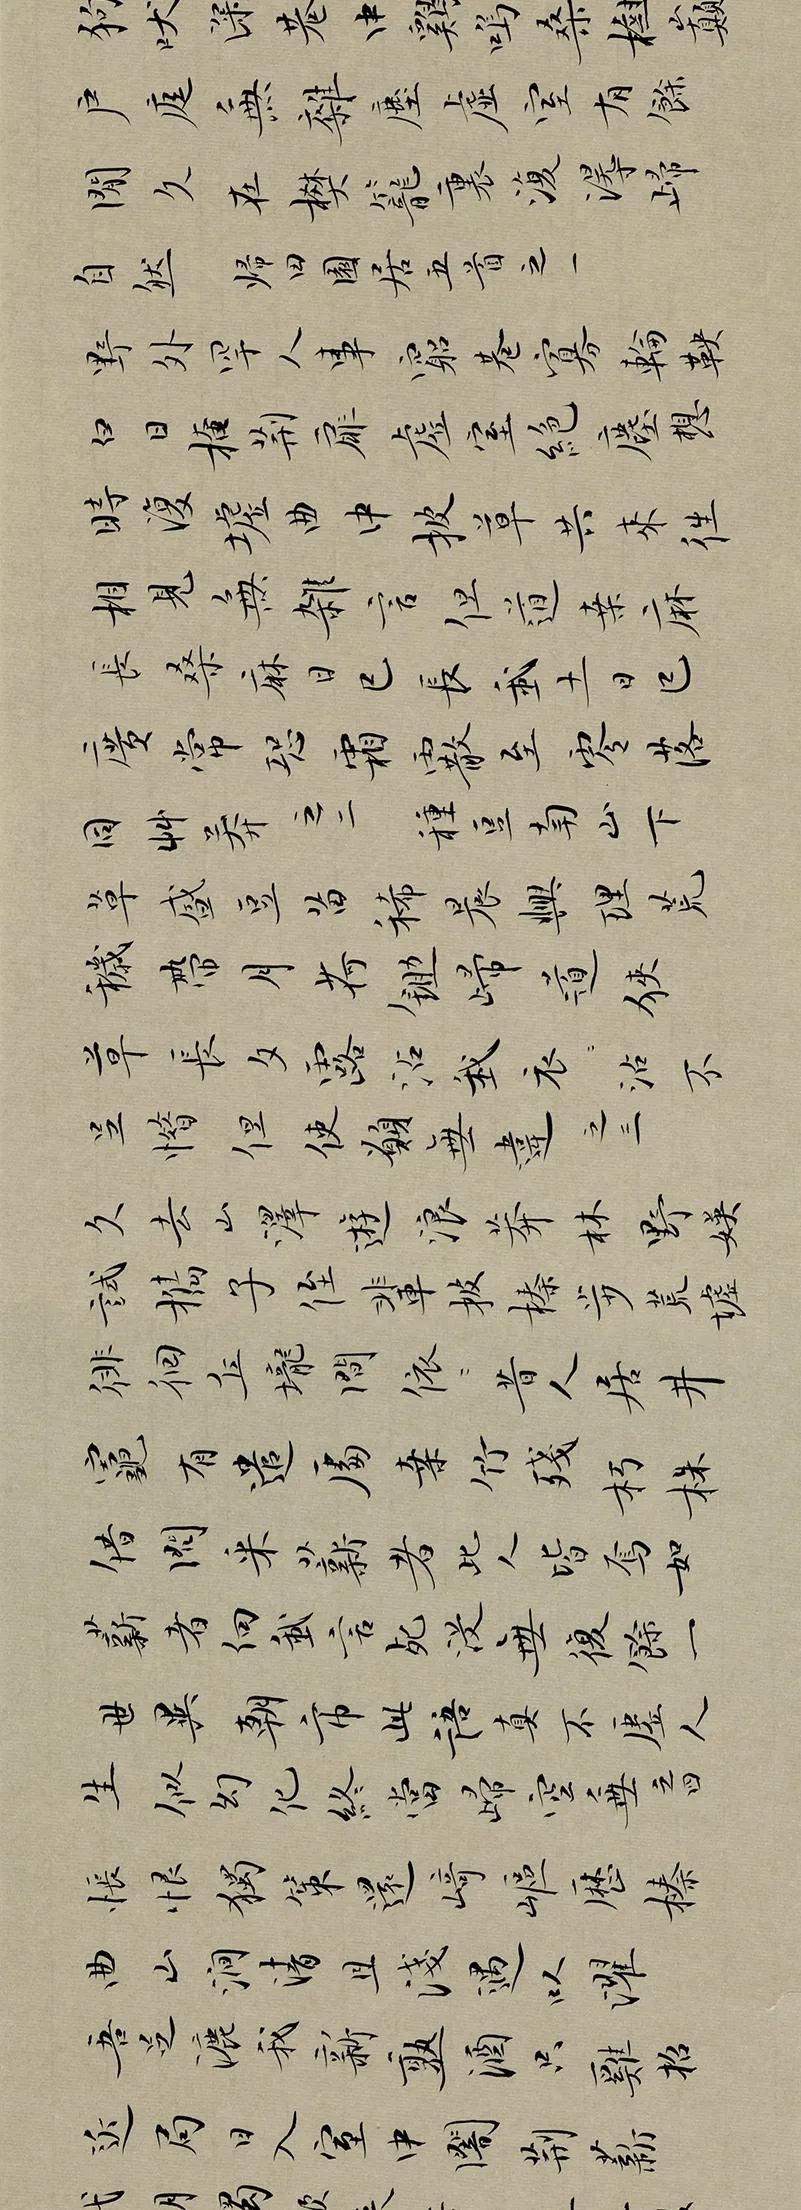 狗吠深巷中雞鳴桑樹巔
戶庭無雜塵虛室有餘
閒久在樊籠裏復得歸
自然 歸田園居五首之一
野外罕人事窮巷寡輪鞅
白日掩荊扉虛室絕塵想
時復墟曲中披草共來往
相見無雜言但道桑麻
長桑麻日已長我土日已
廣常恐霜霰至零落
同艸莽 之二 種豆南山下
草盛豆苗稀晨興理荒
穢帶月荷鋤歸道狹
草長夕露沾我衣〻沾不
足惜但使願無違 之三
久去山澤遊浪莽林野娛
試攜子侄輩披榛步荒墟
徘徊丘壠間依〻昔人居井
竈有遺處桑竹殘朽株
借問采薪者此人皆焉如
薪者向我言死沒無復餘一
世異朝市此語真不虛人
生似幻化終當歸空無 之四
悵恨獨策還崎嶇歷榛
曲山澗清且淺遇以濯
吾足漉我新熟酒只雞招
近局日入室中闇荊薪